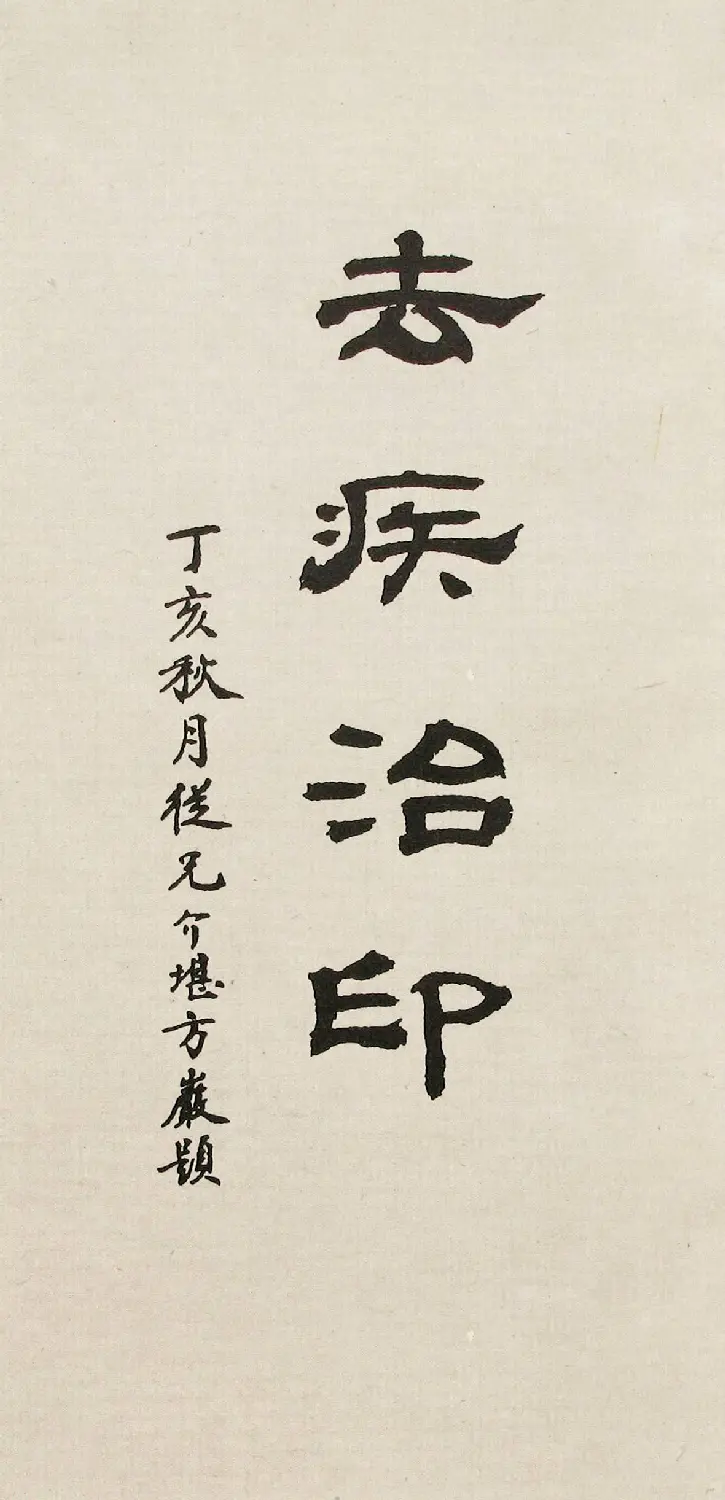 去疾治印
丁亥秋月從兄介堪方巖題